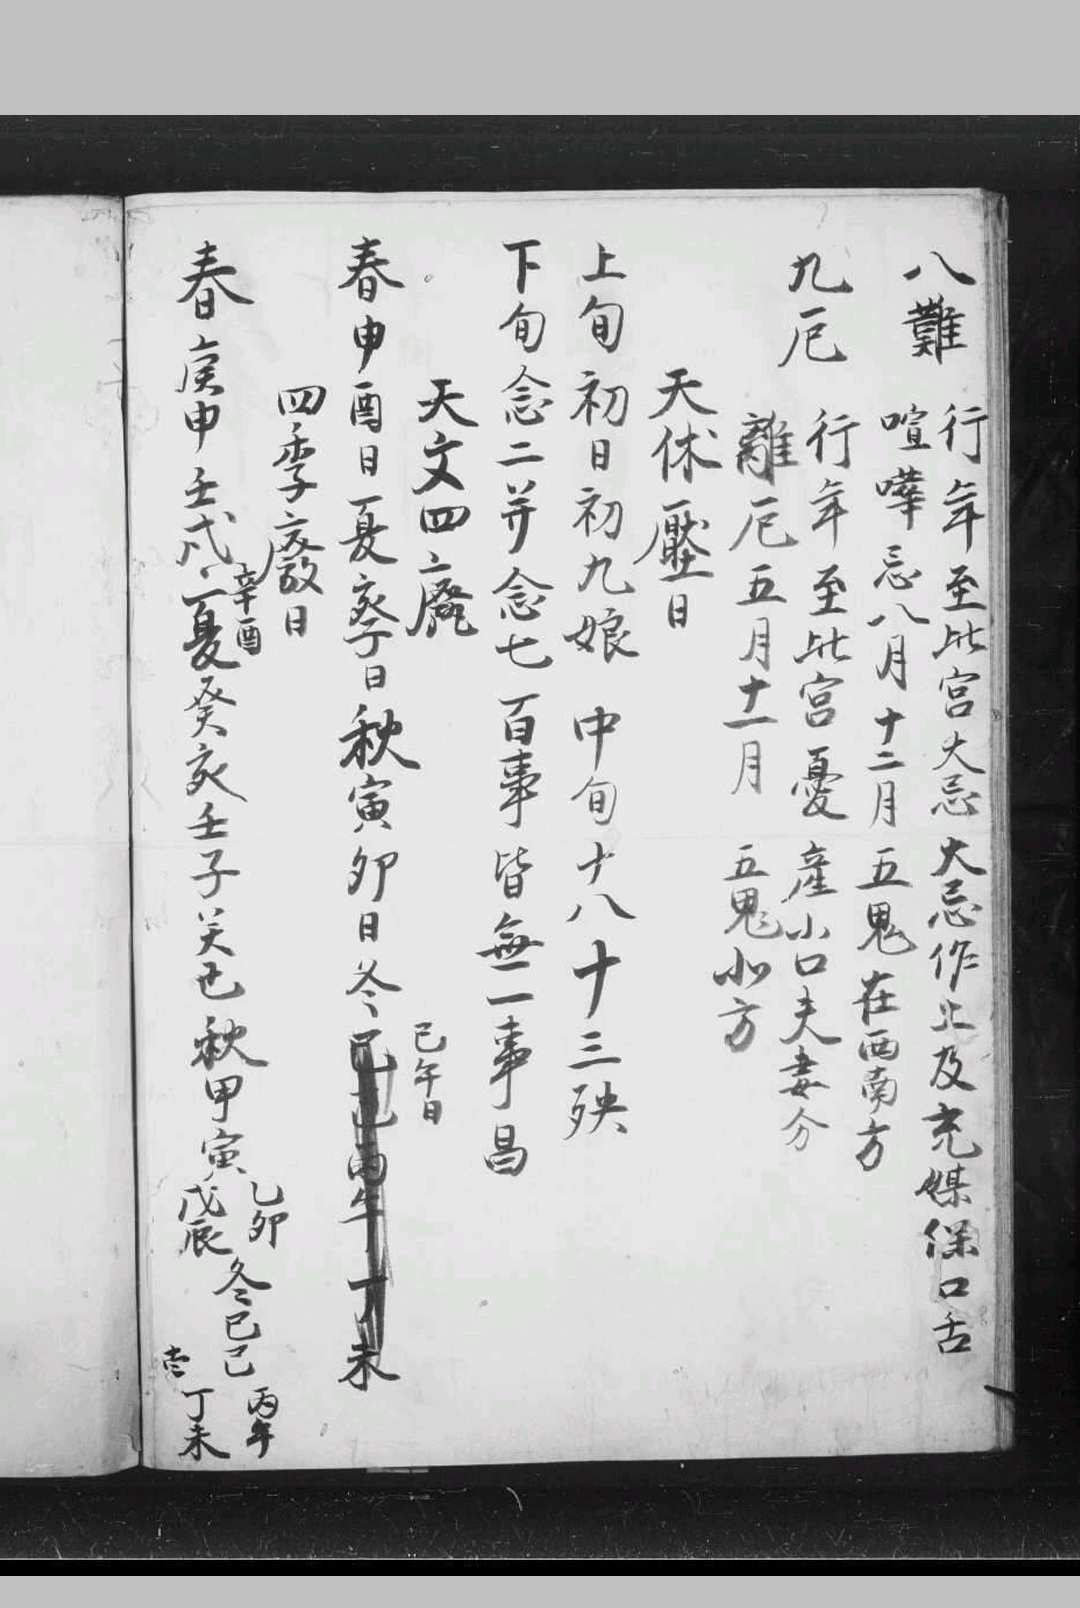 八難
行年至此宮大忌大忌作上及充媒保口舌
喧嘩忌八月十二月五鬼在西南方
九厄
行年至此宮憂產小口夫妻分
離厄五月十一月 五鬼北方
天休壓日
上旬初日初九娘 中旬十八十三殃
下旬念二并念七百事皆無一事昌
天文四廢
春申酉日夏亥子日秋寅卯日冬
巳午日
丁未
四季廢日
春庚申壬戌
辛酉
夏癸亥壬子
秋甲寅
乙卯
戊辰
冬己巳
丙午
丁未